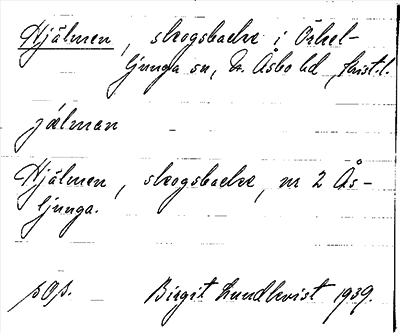 Hjälmen, skogsbacke i Örkel-
ljunga sn, N. Åsbo hd, Krist. l.
jälman
Hjälmen, skogsbacke, nr 2 Ås-
ljunga.
sOs. Birgit Lundkvist 1939.